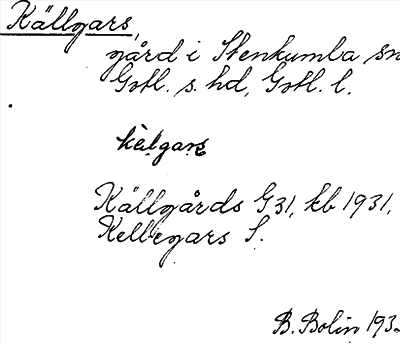 Källgars,
gård i Stenkumla sn
Gotl. s. hd, Gotl. l.
kälgars
Källgårds G31, kb 1931,
Kellegars S.
B. Bolin 193